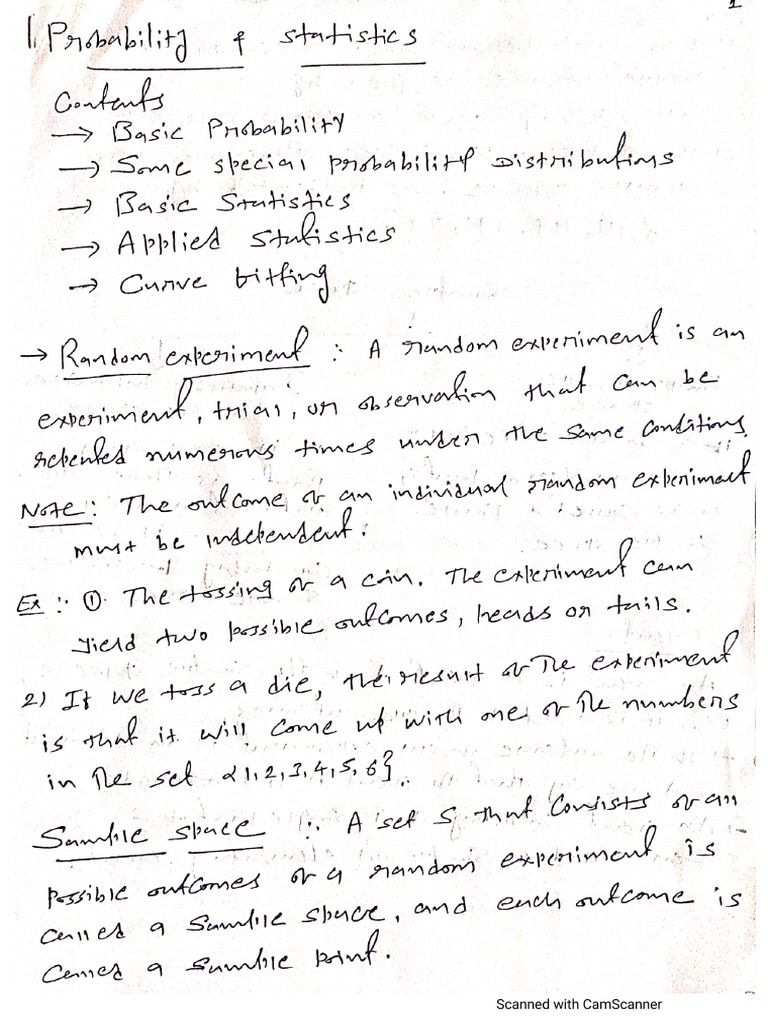 1
1. Probability & statistics
Contents
→ Basic Probability
→ Some special probability Distributions
→ Basic Statistics
→ Applied Statistics
→ Curve fitting
→ Random experiment :. A random experiment is an
experiment, trial, or observation that can be
repeated numerous times under the same conditions.
Note: The outcome of an individual random experiment
must be independent.
Ex :. ①. The tossing of a coin. The experiment can
yield two possible outcomes, heads or tails.
2) If we toss a die, the result of the experiment
is that it will come up with one of the numbers
in the set {1,2,3,4,5,6}.
Sample space :. A set S that consists of all
possible outcomes of a random experiment is
called a sample space, and each outcome is
called a sample point.
Scanned with CamScanner